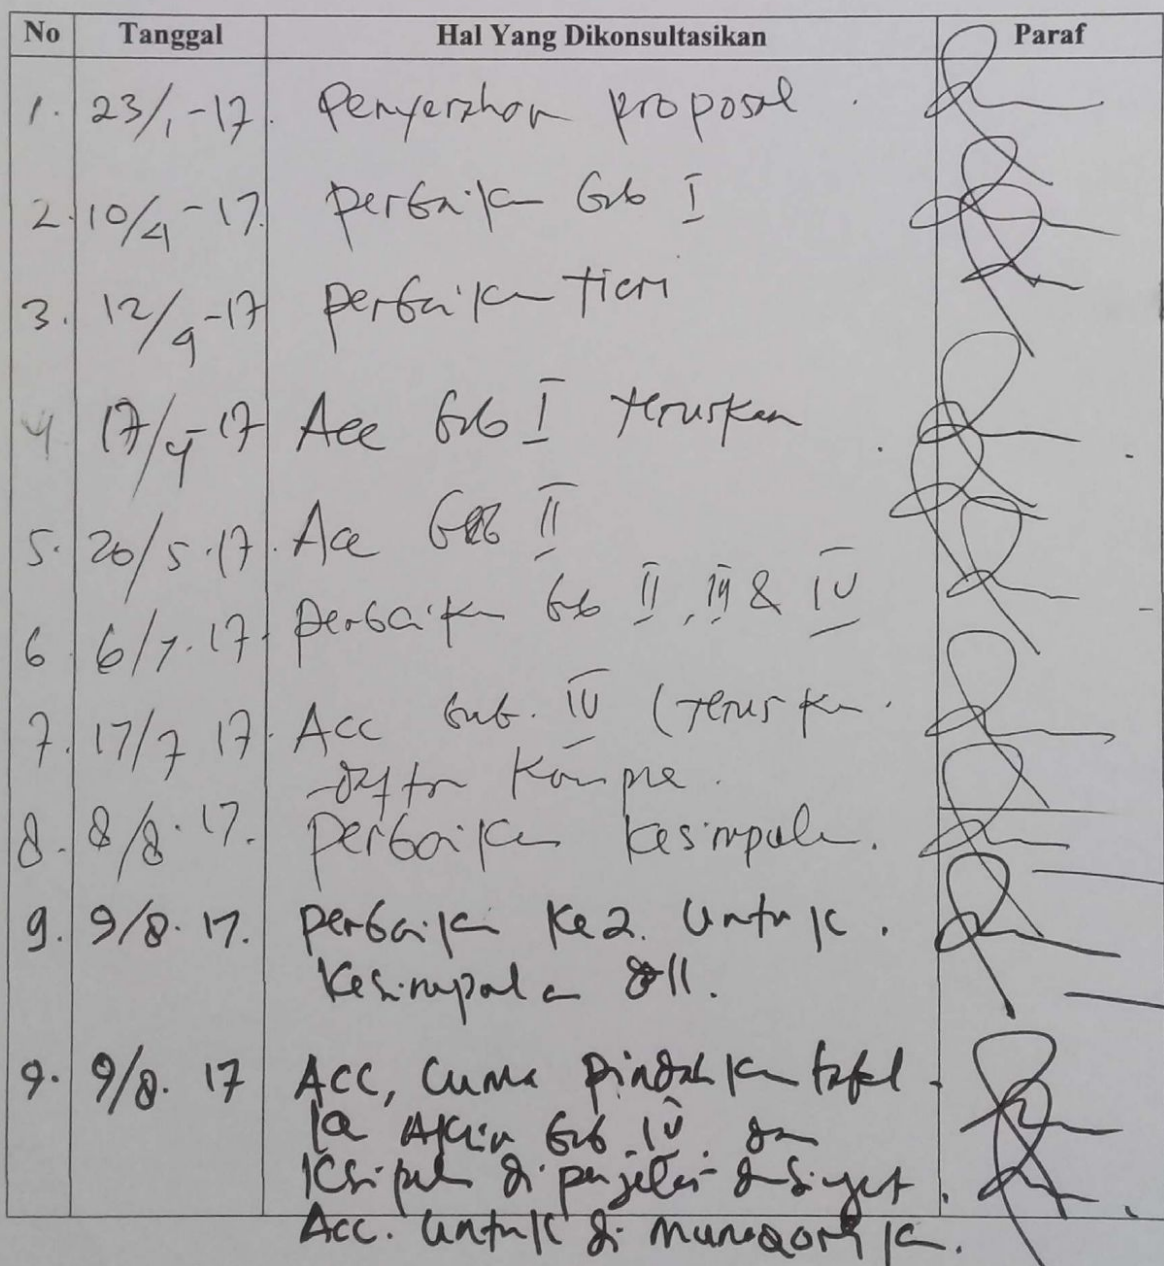 No Tanggal Hal Yang Dikonsultasikan Paraf
1. 23/1-17. Penyerahan proposal.
2. 10/4-17. perbaikan bab I
3. 12/4-17 perbaikan
4 17/4-17 Acc bab I teruskan.
5. 20/5-17. Acc bab II
6 6/7.17. perbaikan bab II, III & IV
7. 17/7 17. Acc bab. IV (teruskan.
-daftar Kompre.
8. 8/8.17. perbaikan kesimpulan.
9. 9/8.17. perbaikan ke 2. Untuk.
kesimpulan dll.
9. 9/8.17 Acc, Cuma pindahkan tabel
ke Akhir bab IV dan
di
Acc. untuk di munaqosahkan.